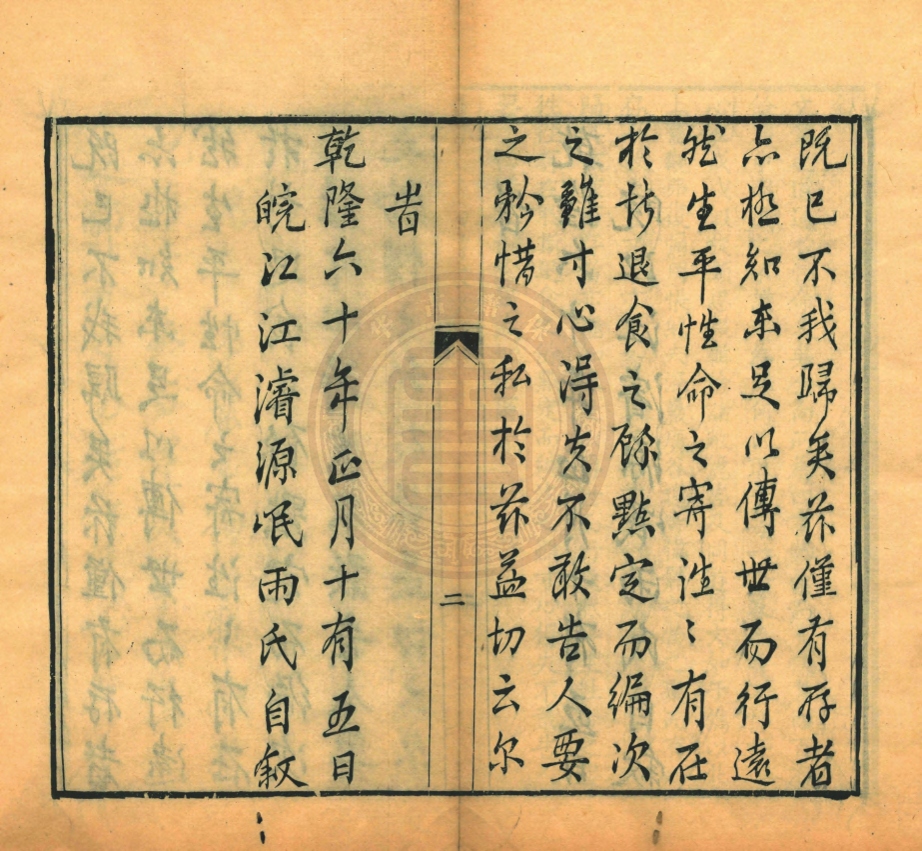 既已不我歸矣茲僅有存者
亦極知未足以傳世而行遠
然生平性命之寄往〻有在
於是退食之餘點定而編次
之雖寸心得失不敢告人要
之矜惜之私於茲益切云尔
二
旹
乾隆六十年正月十有五日
皖江江濬源岷雨氏自敘